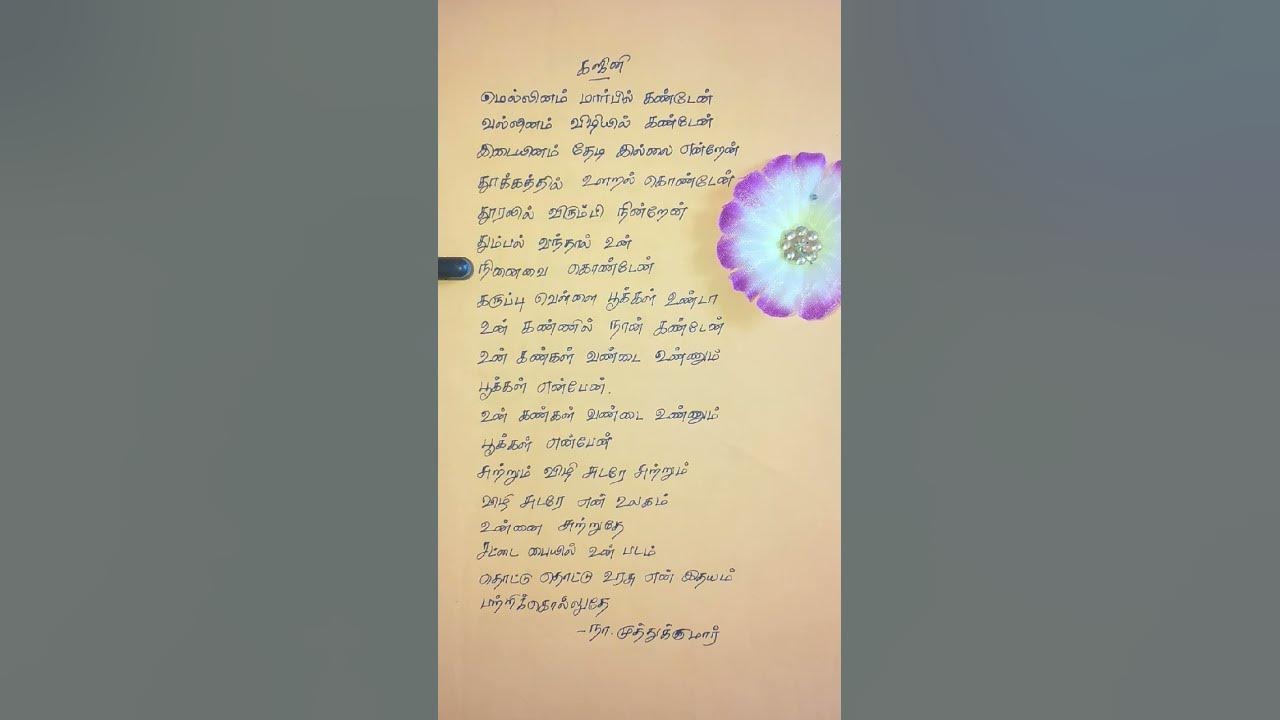 கஜினி
மெல்லினம் மார்பில் கண்டேன்
வல்லினம் விழியில் கண்டேன்
இடையினம் தேடி இல்லை என்றேன்
தூக்கத்தில் உளறல் கொண்டேன்
தூரலில் விரும்பி நின்றேன்
தும்பல் வந்தால் உன்
நினைவை கொண்டேன்
கருப்பு வெள்ளை பூக்கள் உண்டா
உன் கண்ணில் நான் கண்டேன்
உன் கண்கள் வண்டை உண்ணும்
பூக்கள் என்பேன்.
உன் கண்கள் வண்டை உண்ணும்
பூக்கள் என்பேன்
சுற்றும் விழி சுடரே சுற்றும்
விழி சுடரே என் உலகம்
உன்னை சுற்றுதே
சட்டை பையில் உன் படம்
தொட்டு தொட்டு உரசு என் இதயம்
பற்றிக்கொல்லுதே
- நா. முத்துக்குமார்